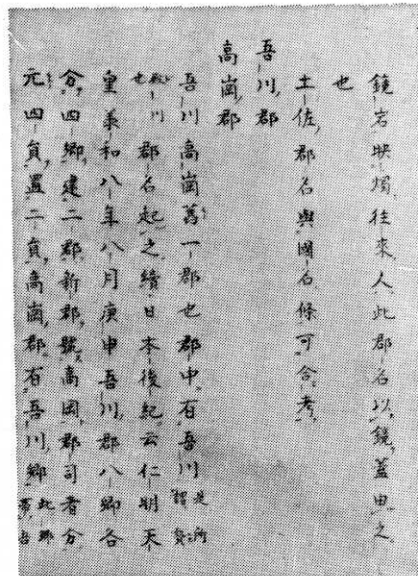 鏡岩映燭往来人此郡名以鏡蓋由之
也
土佐郡名與國名條可合考
吾川郡
高岡郡
吾川高岡旧一郡也郡中有吾川是所謂貨
川也郡名起之續日本後紀云仁明天
皇承和八年八月庚申吾川郡八郷各
分四郷建二郡新郡號高岡郡司者分
元四員置二員高岡郡有吾川郷此郷